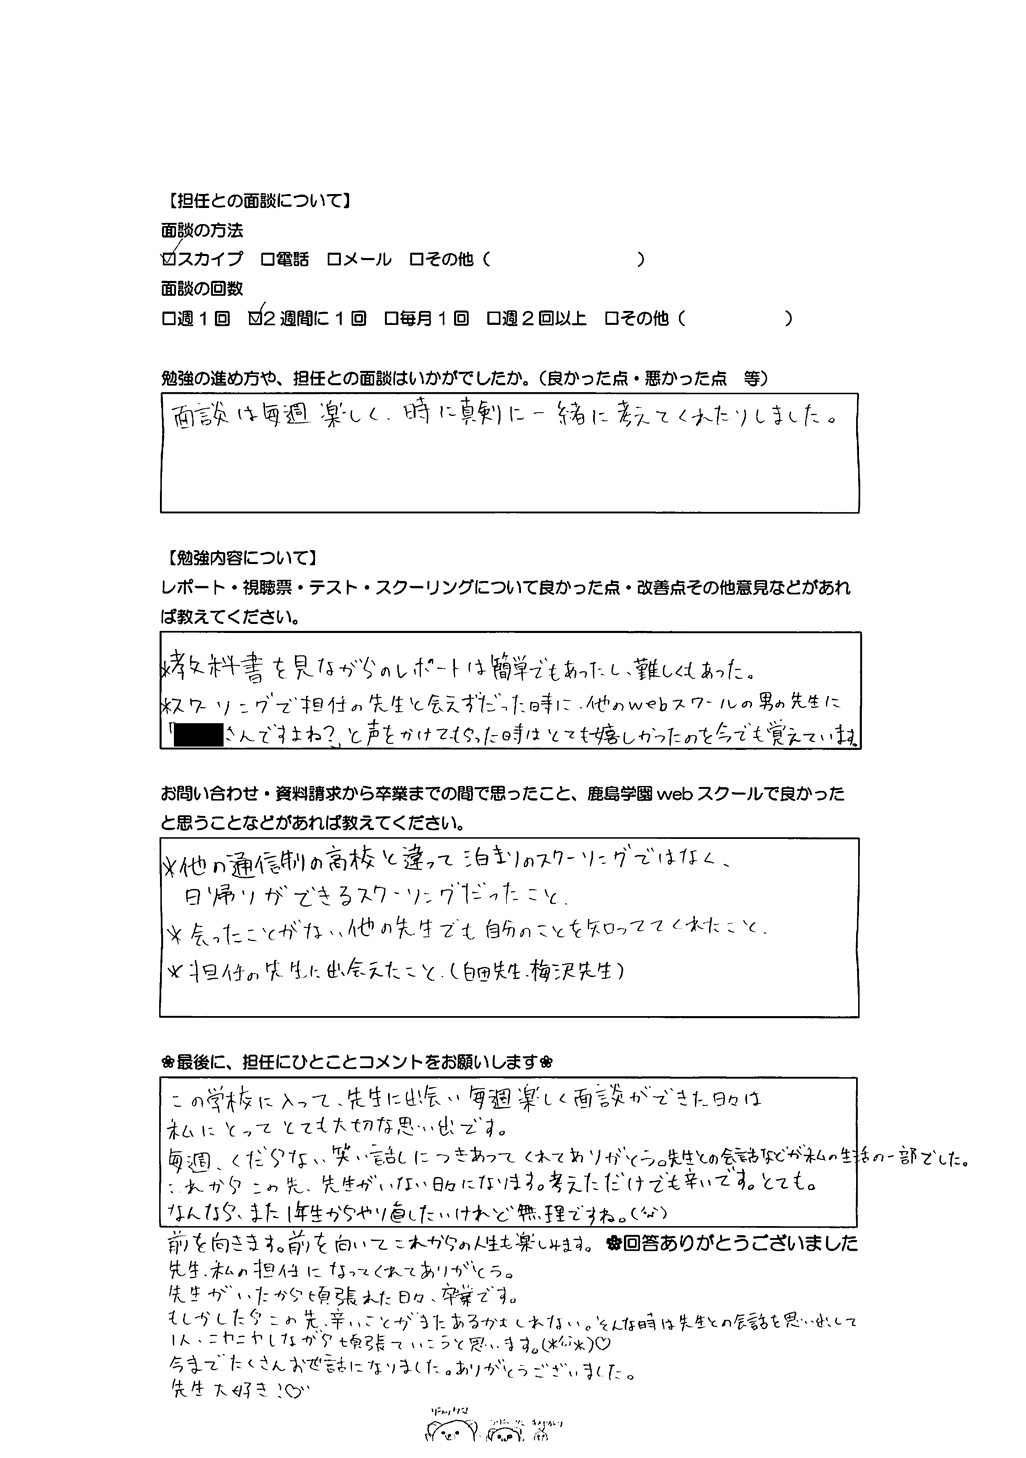 【担任との面談について】
面談の方法
☑スカイプ　□電話　□メール　□その他（　　　　　　　　　）
面談の回数
□週1回　☑2週間に1回　□毎月1回　□週2回以上　□その他（　　　　　　）
勉強の進め方や、担任との面談はいかがでしたか。（良かった点・悪かった点　等）
面談は毎週楽しく、時に真剣に一緒に考えてくれたりしました。
【勉強内容について】
レポート・視聴票・テスト・スクーリングについて良かった点・改善点その他意見などがあれ
ば教えてください。
*教科書を見ながらのレポートは簡単でもあったし、難しくもあった。
*スクーリングで担任の先生と会えずだった時に、他のwebスクールの男の先生に
「　　さんですよね?」と声をかけてもらった時はとても嬉しかったのを今でも覚えています。
お問い合わせ・資料請求から卒業までの間で思ったこと、鹿島学園webスクールで良かった
と思うことなどがあれば教えてください。
*他の通信制の高校と違って泊まりのスクーリングではなく、
日帰りができるスクーリングだったこと、
*会ったことがない他の先生でも自分のことを知っててくれたこと、
*担任の先生に出会えたこと、(白田先生、梅沢先生)
❀最後に、担任にひとことコメントをお願いします❀
この学校に入って、先生に出会い毎週楽しく面談ができた日々は
私にとってとても大切な思い出です。
毎週、くだらない笑い話しにつきあってくれてありがとう。先生との会話などが私の生活の一部でした。
これからこの先、先生がいない日々になります。考えただけでも辛いです。とても。
なんなら、また1年生からやり直したいけれど無理ですね。
前を向きます。前を向いてこれからの人生も楽しみます。 ❀回答ありがとうございました
先生、私の担任になってくれてありがとう。
先生がいたから頑張れた日々、卒業です。
もしかしたらこの先、辛いことがまたあるかもしれない。そんな時は先生との会話を思い出して
1人、ニヤニヤしながら頑張ていこうと思います。♡
今までたくさんお世話になりました。ありがとうございました。
先生大好き!♡